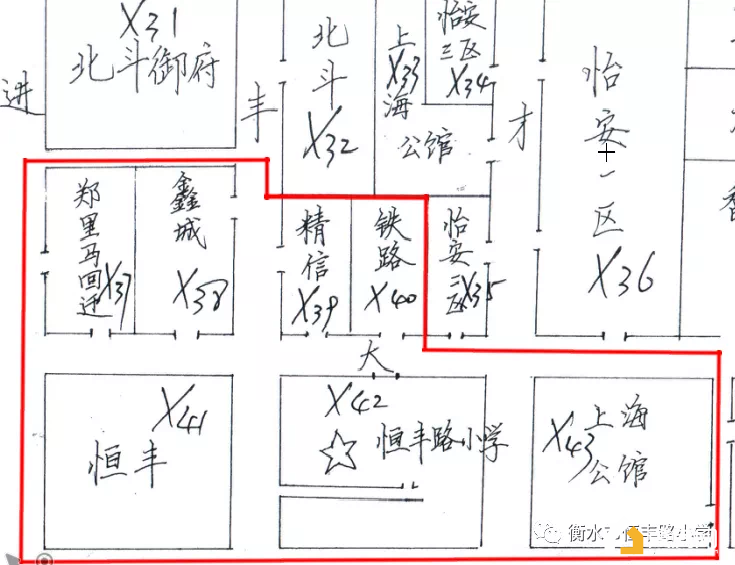 X31
北斗御府
进
丰
北斗
X32
上海
公馆
X33
怡安
三区
X34
才
怡安一区
X36
郑里马回迁
X37
鑫城
X38
精信
X39
铁路
X40
怡安
二区
X35
大
X41
恒丰
X42
恒丰路小学
X43
上海
公馆